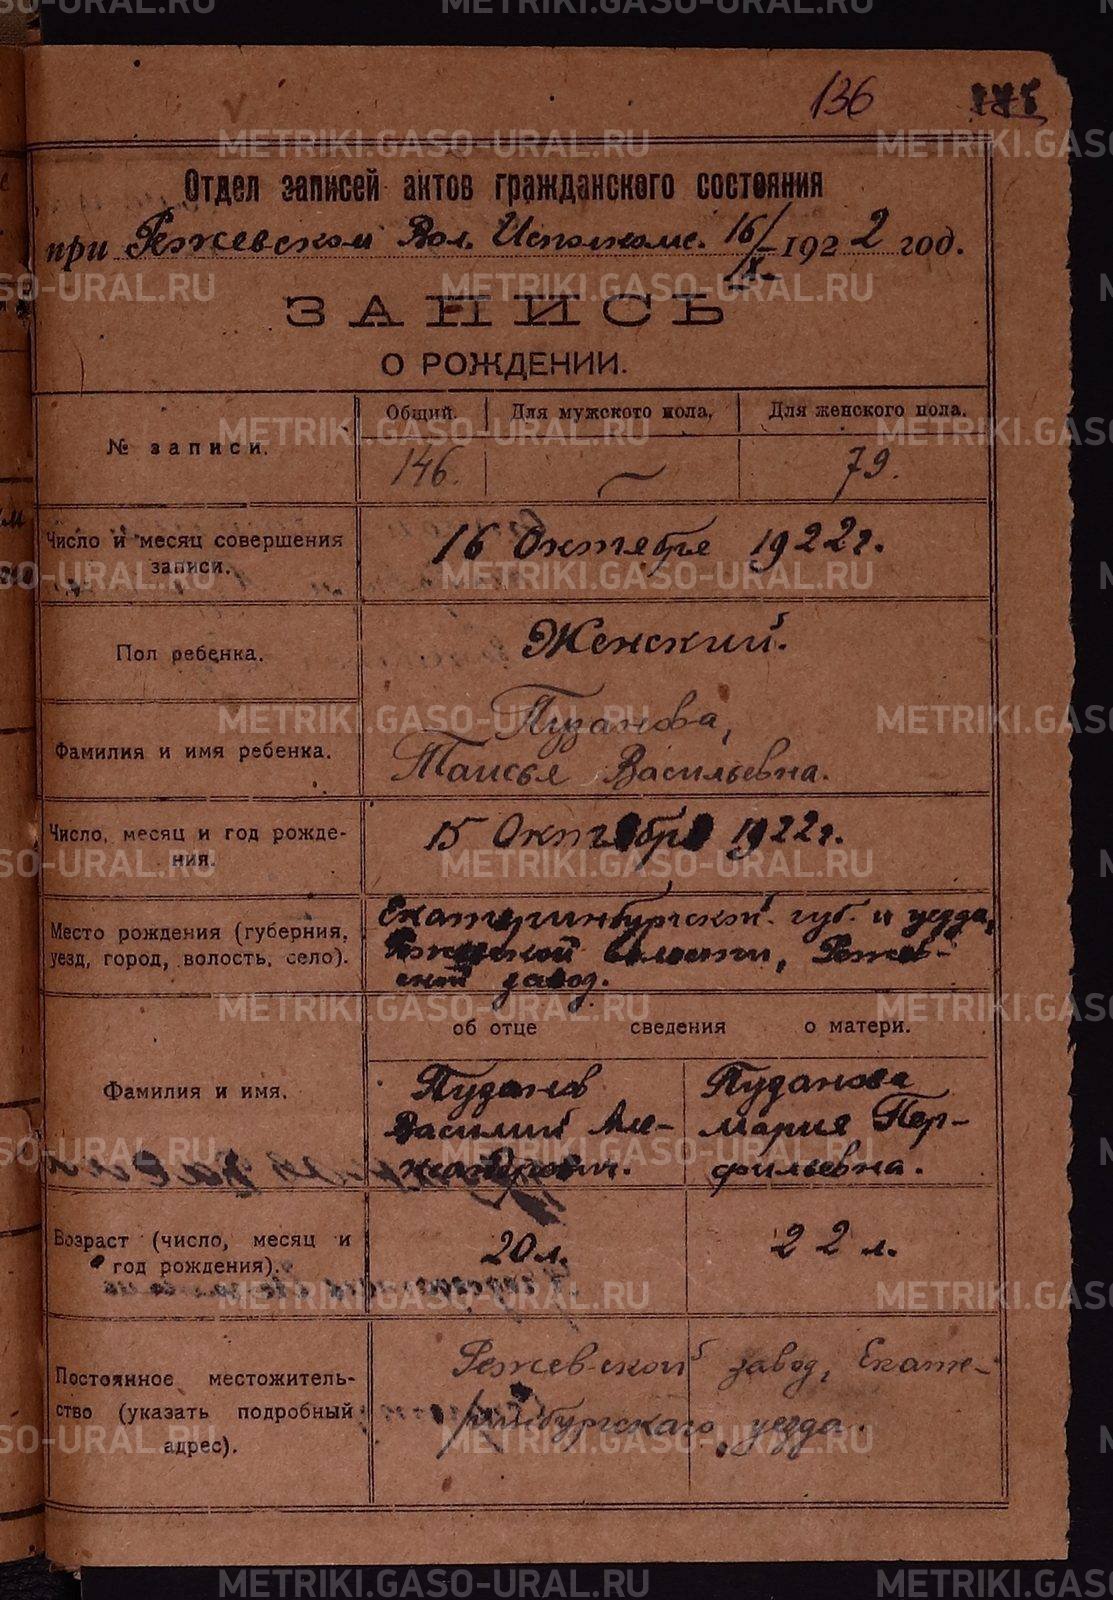 136
Отдел записей актов гражданского состояния
при Режевском Вол. Исполкоме. 16/IX- 1922 год.
ЗАПИСЬ
О РОЖДЕНИИ.
№ записи.
Общий. Для мужского пола. Для женского пола.
146. — 79.
Число и месяц совершения записи.
16 Октября 1922 г.
Пол ребенка.
Женский.
Фамилия и имя ребенка.
Пузанова,
Таисья Васильевна.
Число, месяц и год рождения.
15 Октября 1922 г.
Место рождения (губерния,
уезд, город, волость, село).
Екатеринбургской губ. и уезда,
Режевской волости, Режев-
ской завод.
об отце сведения о матери.
Фамилия и имя.
Пузанов
Василий Але-
ксандрович.
Пузанова
Мария Пер-
фильевна.
Возраст (число, месяц и
год рождения).
20 л.
22 л.
Постоянное местожитель-
ство (указать подробный
адрес).
Режевской завод, Екате-
ринбургскаго уезда.
METRIKI.GASO-URAL.RU